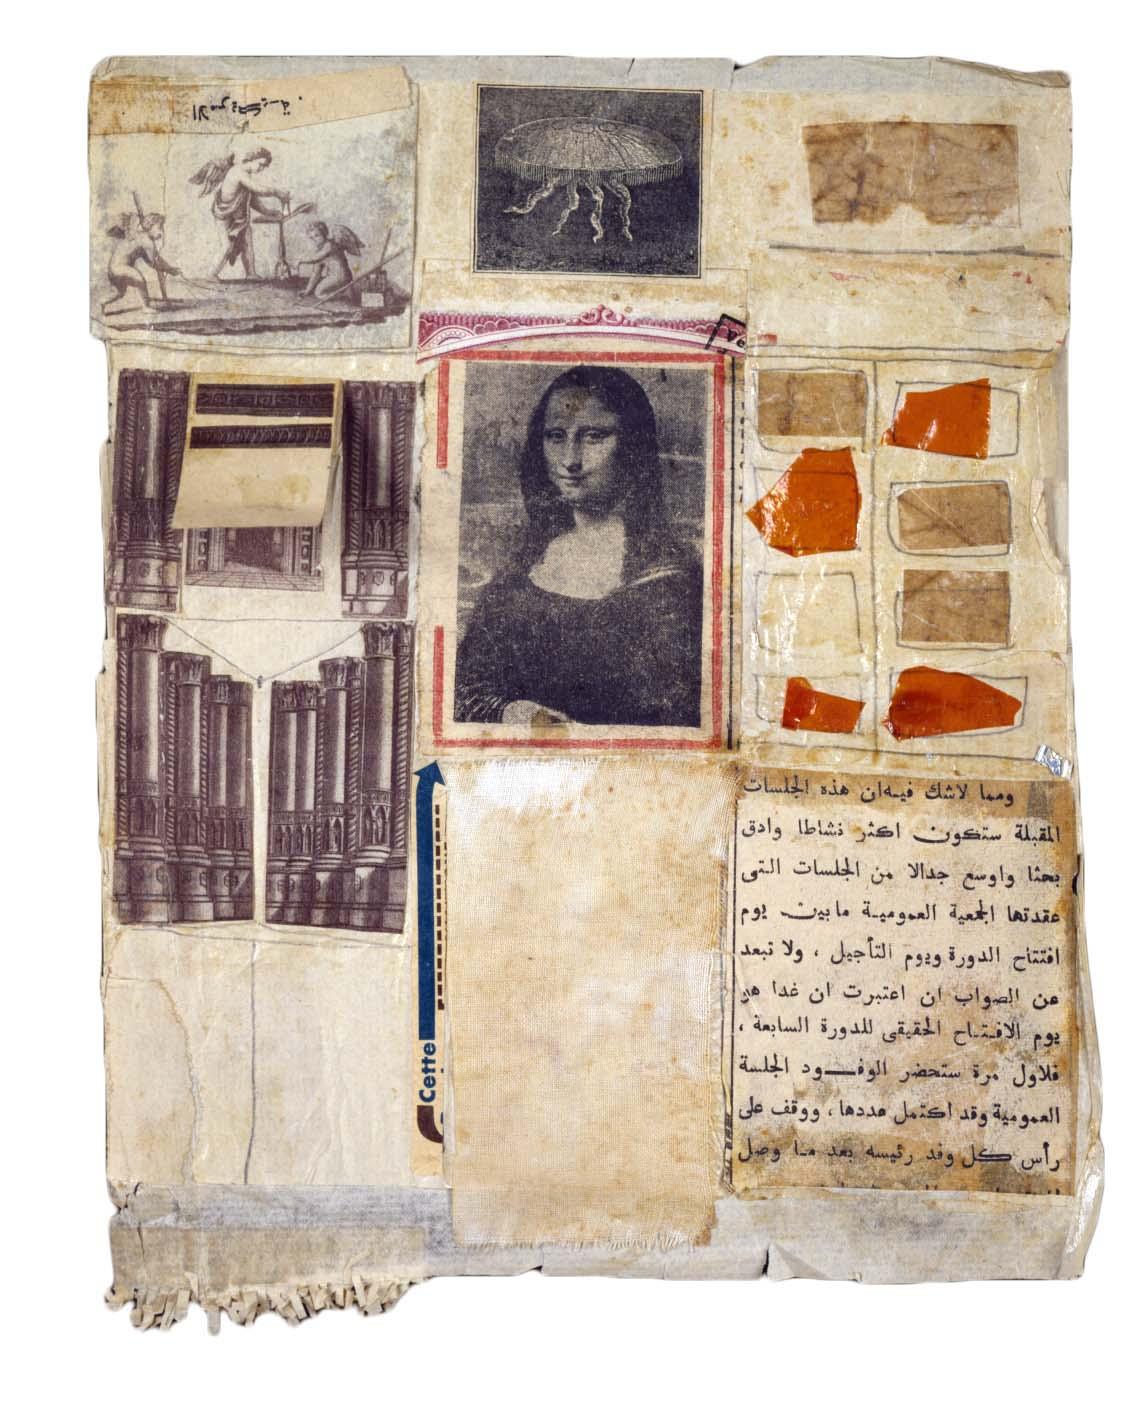 الامريكية.
Ve
Cette
ومما لاشك فيه ان هذه الجلسات
المقبلة ستكون اكثر نشاطا وادق
بحثا واوسع جدالا من الجلسات التى
عقدتها الجمعية العمومية مابين يوم
افتتاح الدورة ويوم التأجيل ، ولا تبعد
عن الصواب ان اعتبرت ان غدا هو
يوم الافتتاح الحقيقى للدورة السابعة ،
فلاول مرة ستحضر الوفود الجلسة
العمومية وقد اكتمل عددها ، ووقف على
رأس كل وفد رئيسه بعد ما وصل